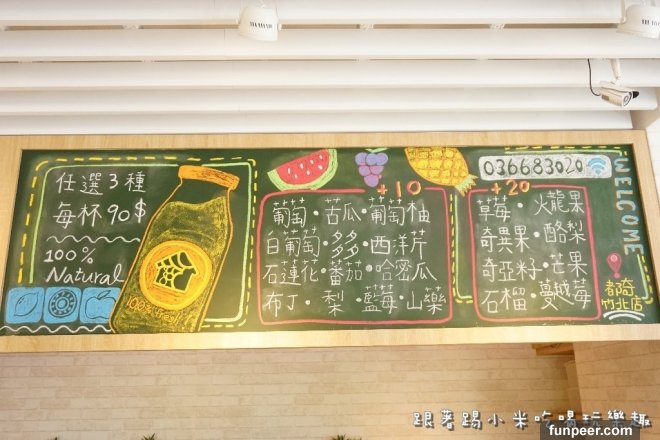 任選3種
每杯90$
100%
Natural
100%
+10
葡萄·苦瓜·葡萄柚
白葡萄·多多·西洋芹
石蓮花·蕃茄·哈密瓜
布丁·梨·藍莓·山藥
+20
草莓·火龍果
奇異果·酪梨
奇亞籽·芒果
石榴·蔓越莓
036683020
WELCOME
都奇
竹北店
跟著踢小米吃喝玩樂趣
funpeer.com